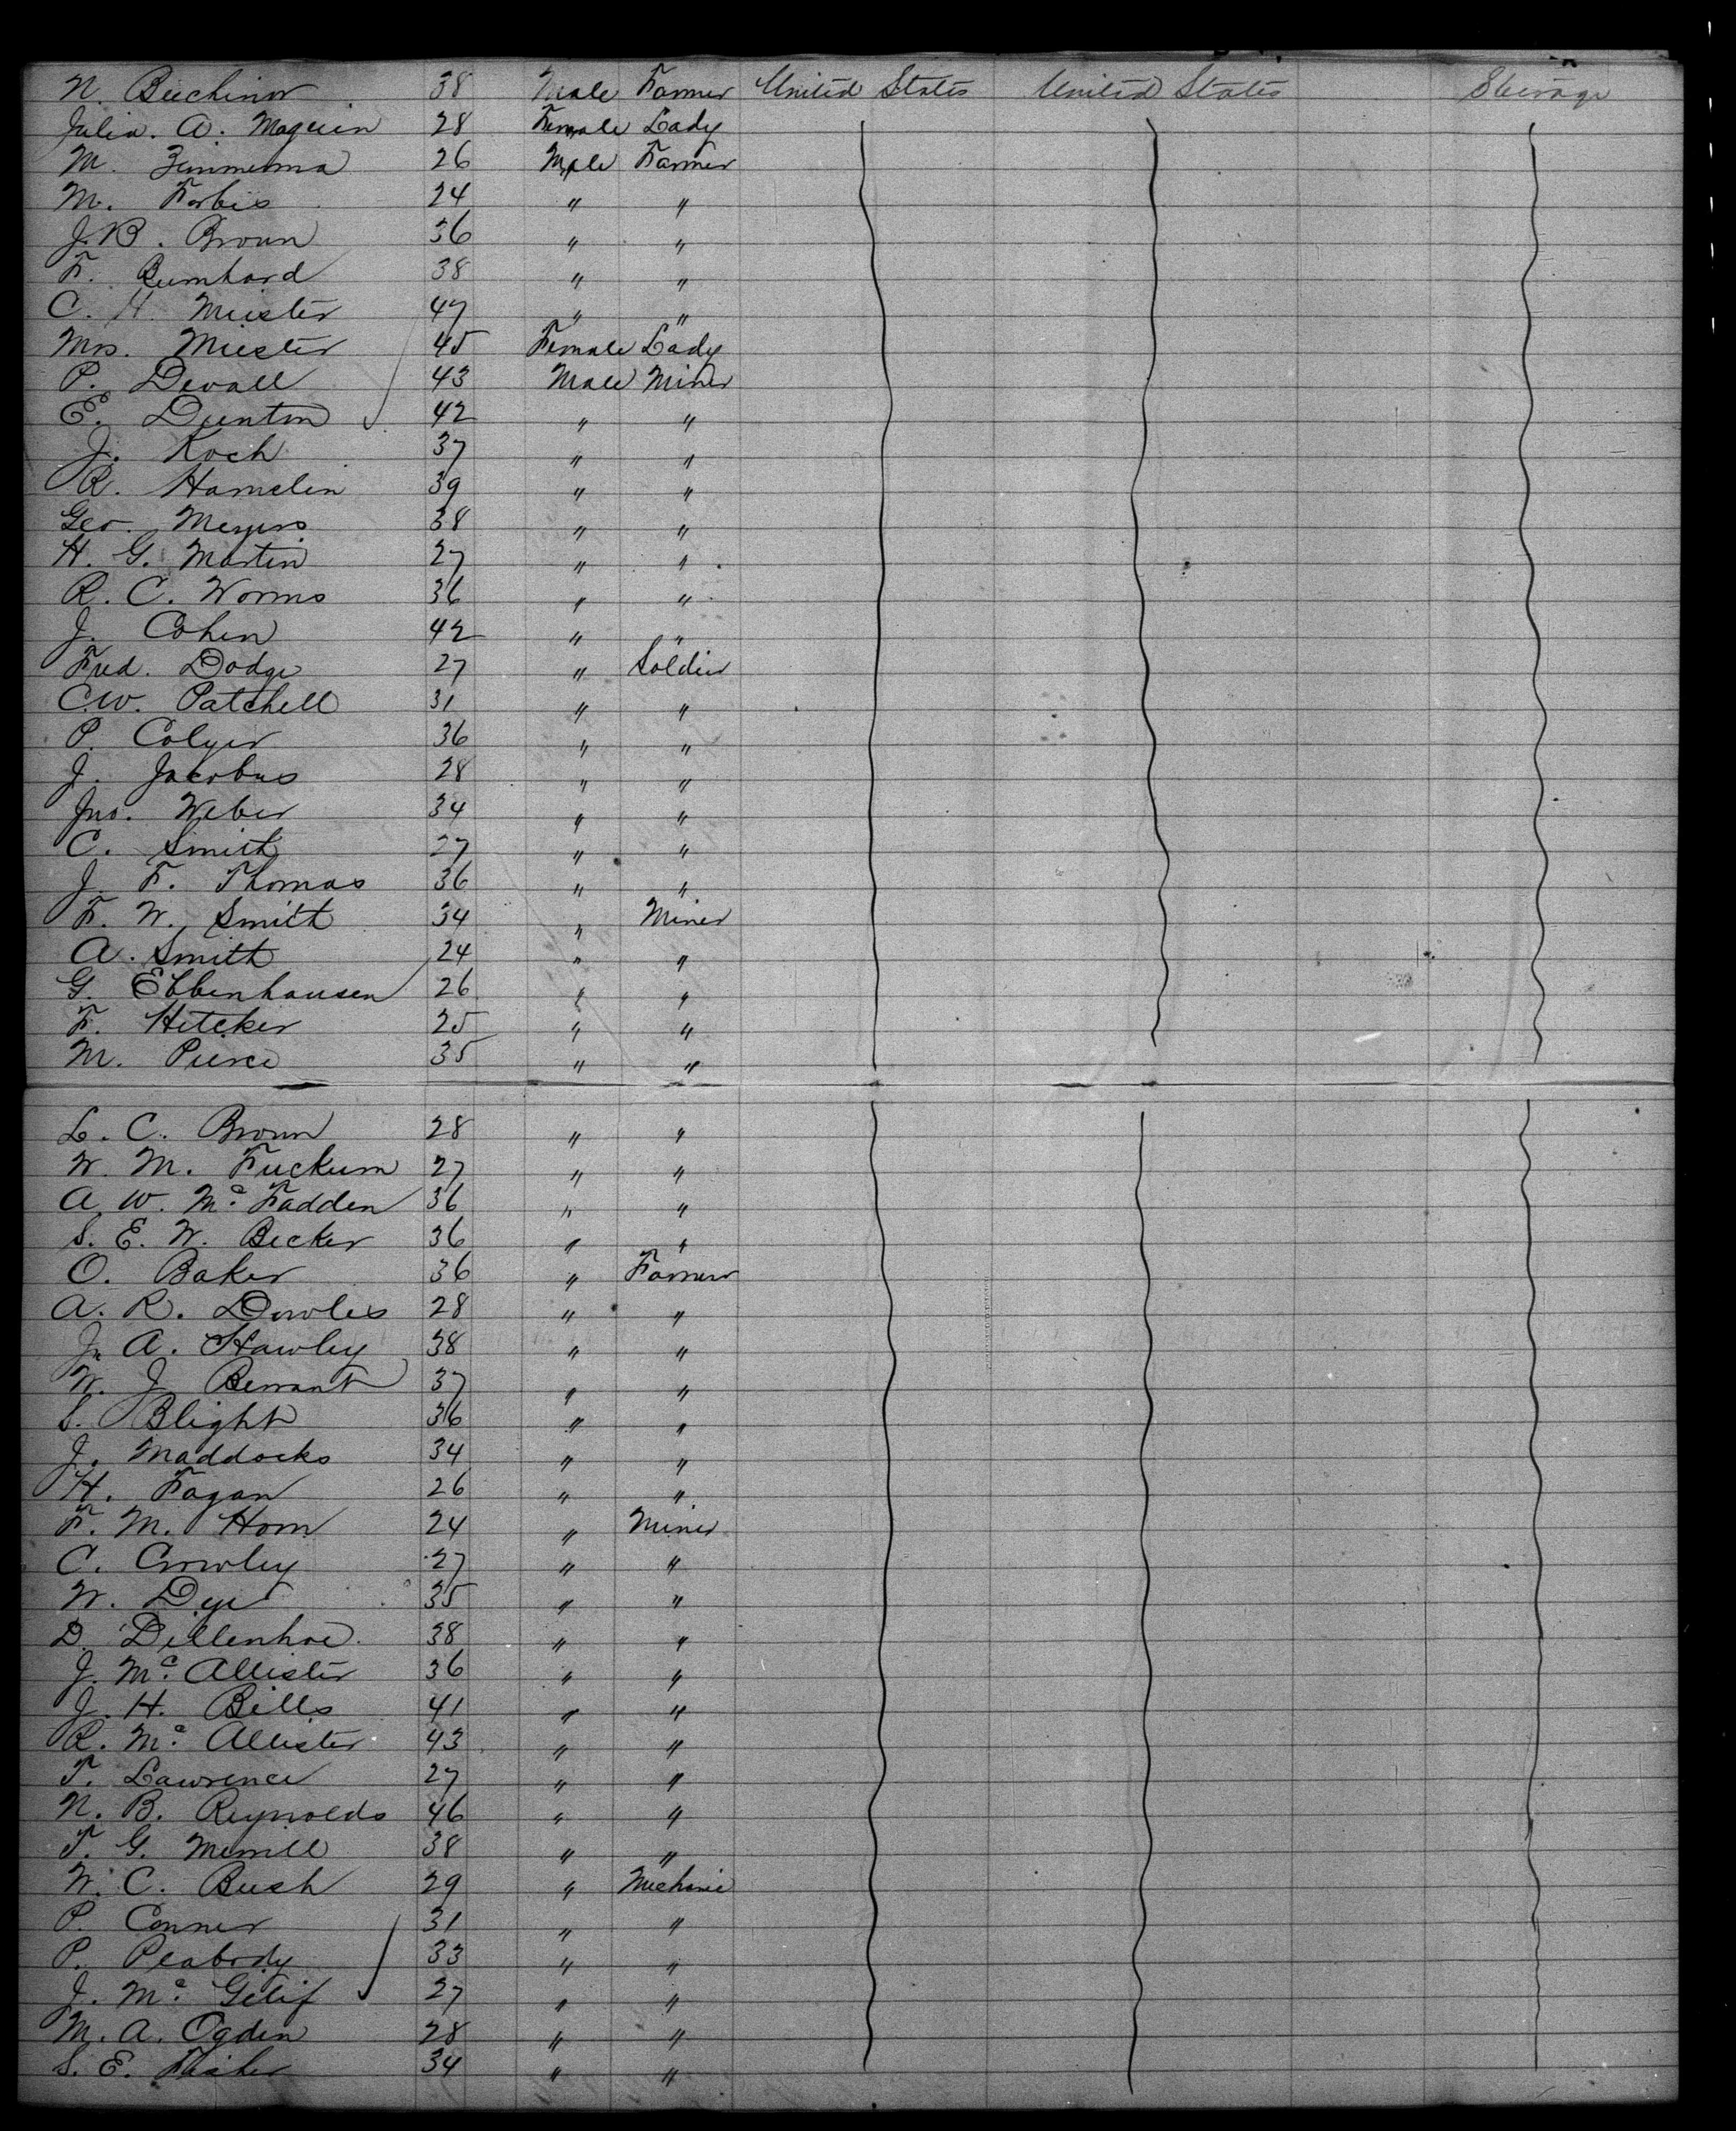 N. Beechinor 38 Male Farmer United States United States Steerage
Julia. A. Maguin 28 Female Lady
M. Zimmerma 26 Male Farmer
M. Forbis 24 " "
J. B. Broun 36 " "
F. Bumhard 38 " "
C. H. Miester 47 " "
Mrs. Miester 45 Female Lady
P. Devall 43 Male Miner
E. Dunton 42 " "
J. Koch 37 " "
R. Hamelin 39 " "
Geo. Meyers 38 " "
H. G. Martin 27 " "
R. C. Worms 36 " "
J. Cohen 42 " "
Fred. Dodge 27 " Soldier
C.W. Patchell 31 " "
P. Colyer 36 " "
J. Jacobus 28 " "
Jno. Weber 34 " "
C. Smith 27 " "
J. F. Thomas 36 " "
F. W. Smith 34 " Miner
A. Smith 24 " "
G. Ebbenhausen 26 " "
F. Hitcker 25 " "
M. Pierce 35 " "
L. C. Broun 28 " "
W. M. Fuckum 27 " "
A. W. Mc Fadden 36 " "
S. E. W. Becker 36 " "
O. Baker 36 " Farmer
A. R. Dowles 28 " "
Jn A. Hawley 38 " "
W. J. Berrant 37 " "
S. Blight 36 " "
J. Maddocks 34 " "
H. Fagan 26 " "
F. M. Horn 24 " Miner
C. Crowley 27 " "
W. Dye 35 " "
D. Dillenhoe 38 " "
J. Mc Allister 36 " "
J. H. Bills 41 " "
R. Mc Allister 43 " "
T. Lawrence 27 " "
N. B. Reynolds 46 " "
T. G. Merrill 38 " "
W. C. Bush 29 " Mechanic
P. Conner 31 " "
P. Peabody 33 " "
J. Mc Gilif 27 " "
M. A. Ogden 28 " "
S. E. Fisher 34 " "